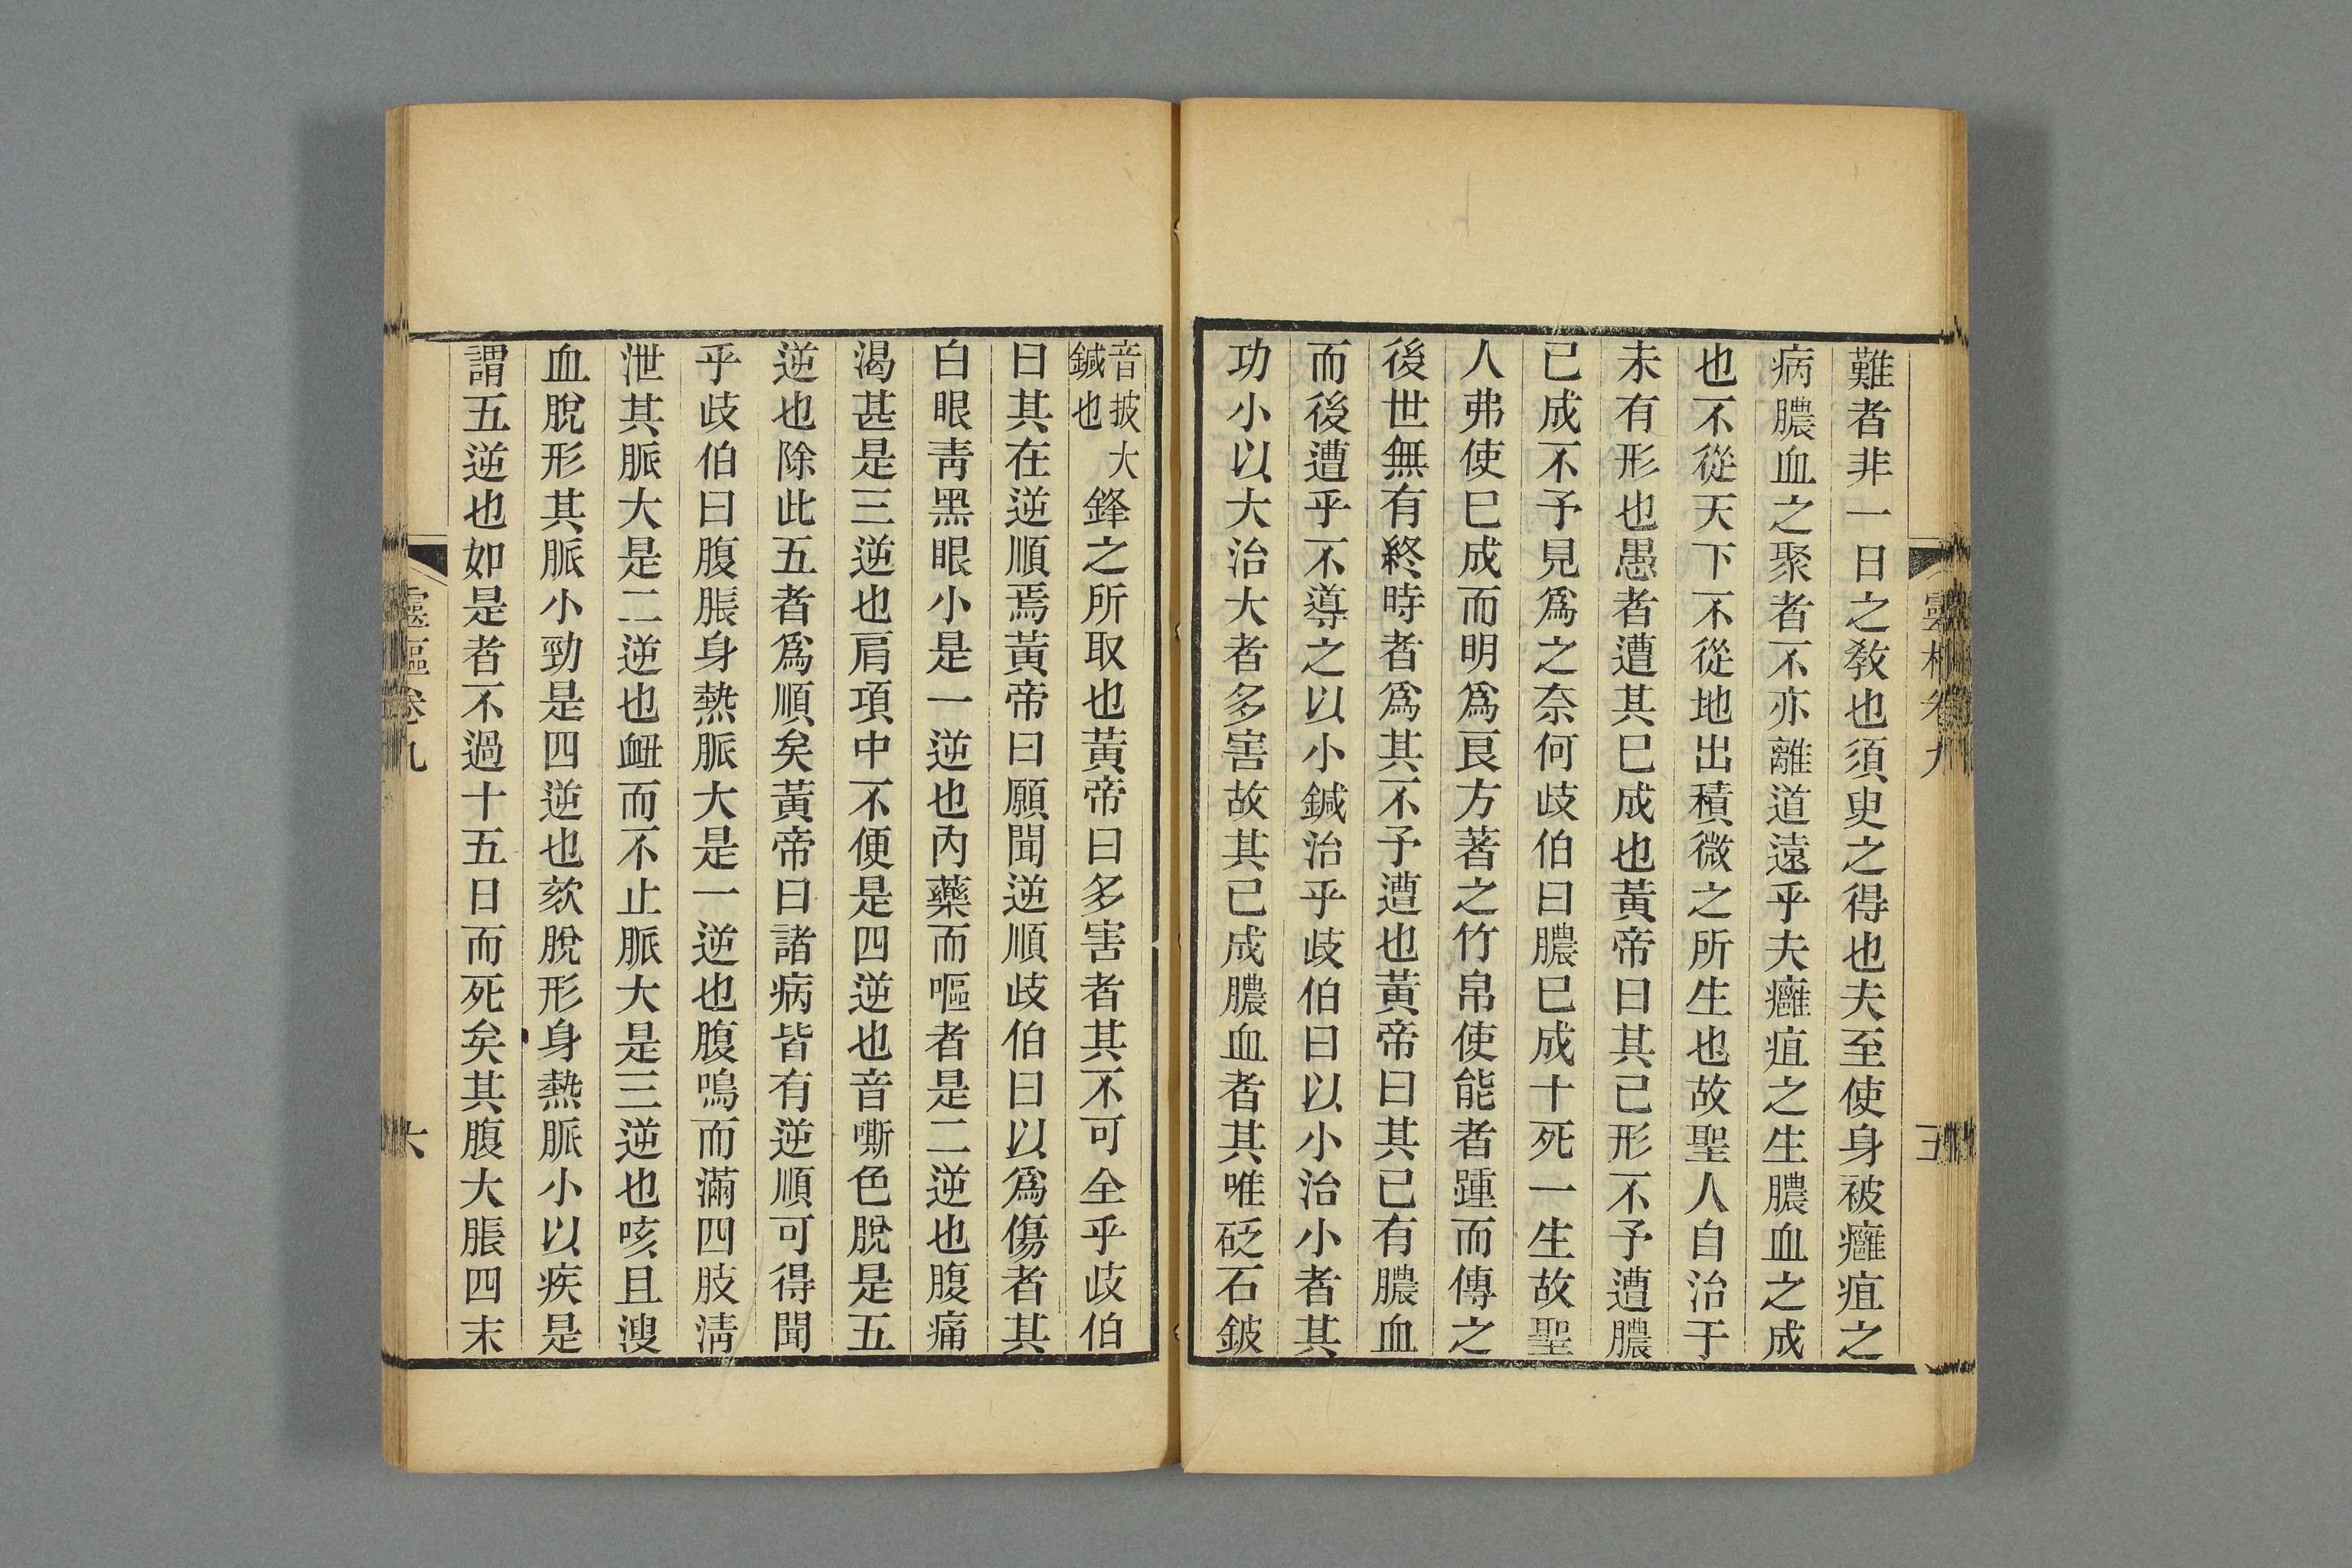 難者非一日之敎也須臾之得也夫至使身被癰疽之
病膿血之聚者不亦離道遠乎夫癰疽之生膿血之成
也不從天下不從地出積微之所生也故聖人自治于
未有形也愚者遭其已成也黃帝曰其已形不予遭膿
已成不予見爲之奈何歧伯曰膿已成十死一生故聖
人弗使已成而明爲良方著之竹帛使能者踵而傳之
後世無有終時者爲其不予遭也黃帝曰其已有膿血
而後遭乎不導之以小鍼治乎歧伯曰以小治小者其
功小以大治大者多害故其已成膿血者其唯砭石鈹
音披大
鍼也
鋒之所取也黃帝曰多害者其不可全乎歧伯
曰其在逆順焉黃帝曰願聞逆順歧伯曰以爲傷者其
白眼靑黑眼小是一逆也內藥而嘔者是二逆也腹痛
渴甚是三逆也肩項中不便是四逆也音嘶色脫是五
逆也除此五者爲順矣黃帝曰諸病皆有逆順可得聞
乎歧伯曰腹脹身熱脈大是一逆也腹鳴而滿四肢淸
泄其脈大是二逆也衄而不止脈大是三逆也咳且溲
血脫形其脈小勁是四逆也欬脫形身熱脈小以疾是
謂五逆也如是者不過十五日而死矣其腹大脹四末
靈樞卷九
六